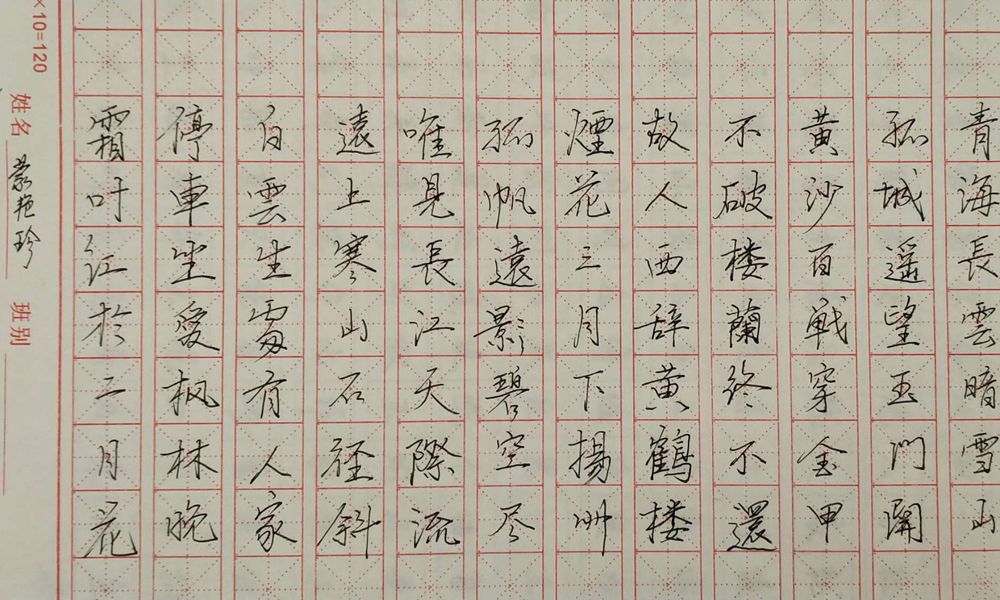 青海長雲暗雪山
孤城遥望玉門関
黄沙百戦穿金甲
不破楼蘭終不還
故人西辞黄鶴楼
煙花三月下揚州
孤帆遠影碧空尽
唯見長江天際流
遠上寒山石径斜
白雲生處有人家
停車坐愛枫林晚
霜叶红於二月花
×10=120
姓名 蒙艳珍 班别